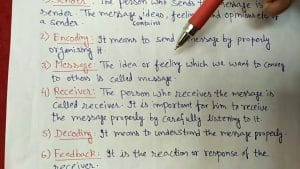 1) Sender: The person who sends the message is
a sender. The message ideas, feelings and opinions of
a sender contains
2) Encoding: It means to send message by properly
organising it.
3) Message: The idea or feeling which we want to convey
to others is called message.
4) Receivers: The person who receives the message is
called receivers. It is important for him to receive
the message properly by carefully listening to it.
5) Decoding: It means to understand the message properly.
6) Feedback: It is the reaction or response of the
receiver.